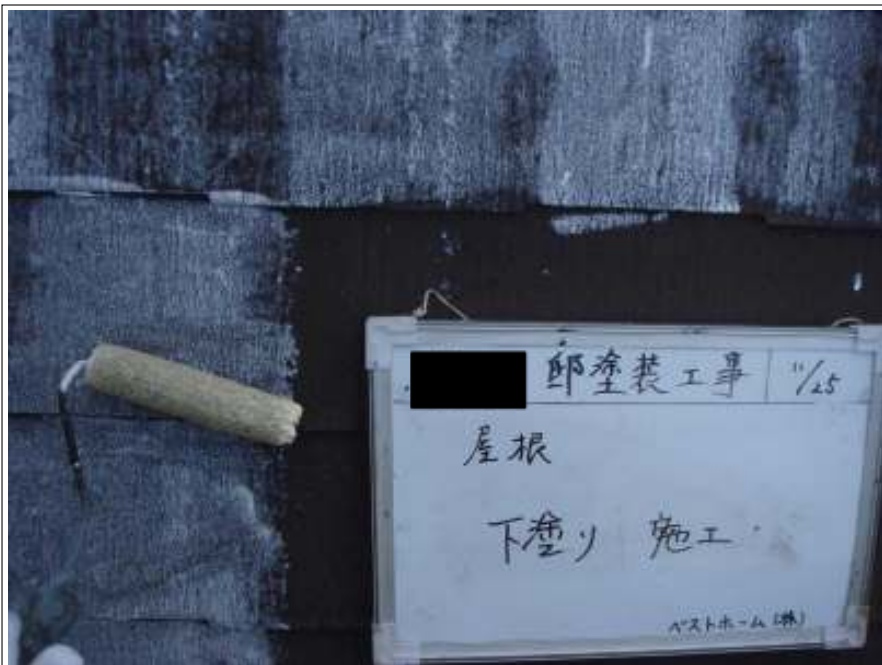 邸塗装工事 11/25
屋根
下塗り 施工
ベストホーム(株)